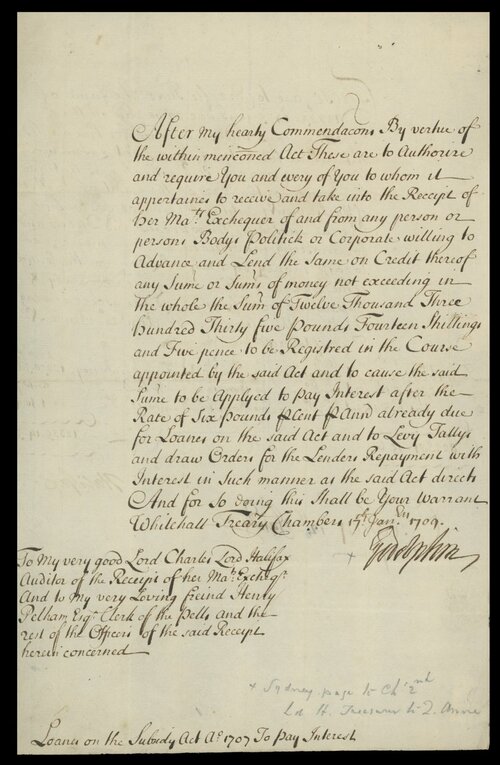 After my hearty Commendacons By vertue of
the within menconed Act These are to Authorize
and require You and every of You to whom it
appertaines to receive and take into the Receipt of
her Ma:ts Exchequer of and from any person or
persons Bodys Politick or Corporate willing to
Advance and Lend the Same on Credit thereof
any Sume or Sums of money not exceeding in
the whole the Sum of Twelve Thousand Three
hundred Thirty five Pounds Fourteen Shillings
and Five pence to be Registred in the Course
appointed by the said Act and to cause the said
Sume to be Applyed to pay Interest after the
Rate of Six Pounds ⅌ Cent ⅌ Ann already due
for Loanes on the said Act and to Levy Tallys
and draw Orders for the Lenders Repayment with
Interest in Such manner as the said Act directs
And for so doing this shall be Your Warrant
Whitehall Treary Chambers 15th Janry 1709.
+ Godolphin
To My very good Lord Charles Lord Halifax
Auditor of the Receipt of her Mats Excheqr
And to My very Loving freind Henry
Pelham Esqr Clerk of the Pells and the
rest of the Officers of the said Receipt
herein concerned
+ Sydney page to Ch: 2nd
Ld H. Treasurer to Q. Anne
Loanes on the Subsidy Act Ao 1707 To pay Interest